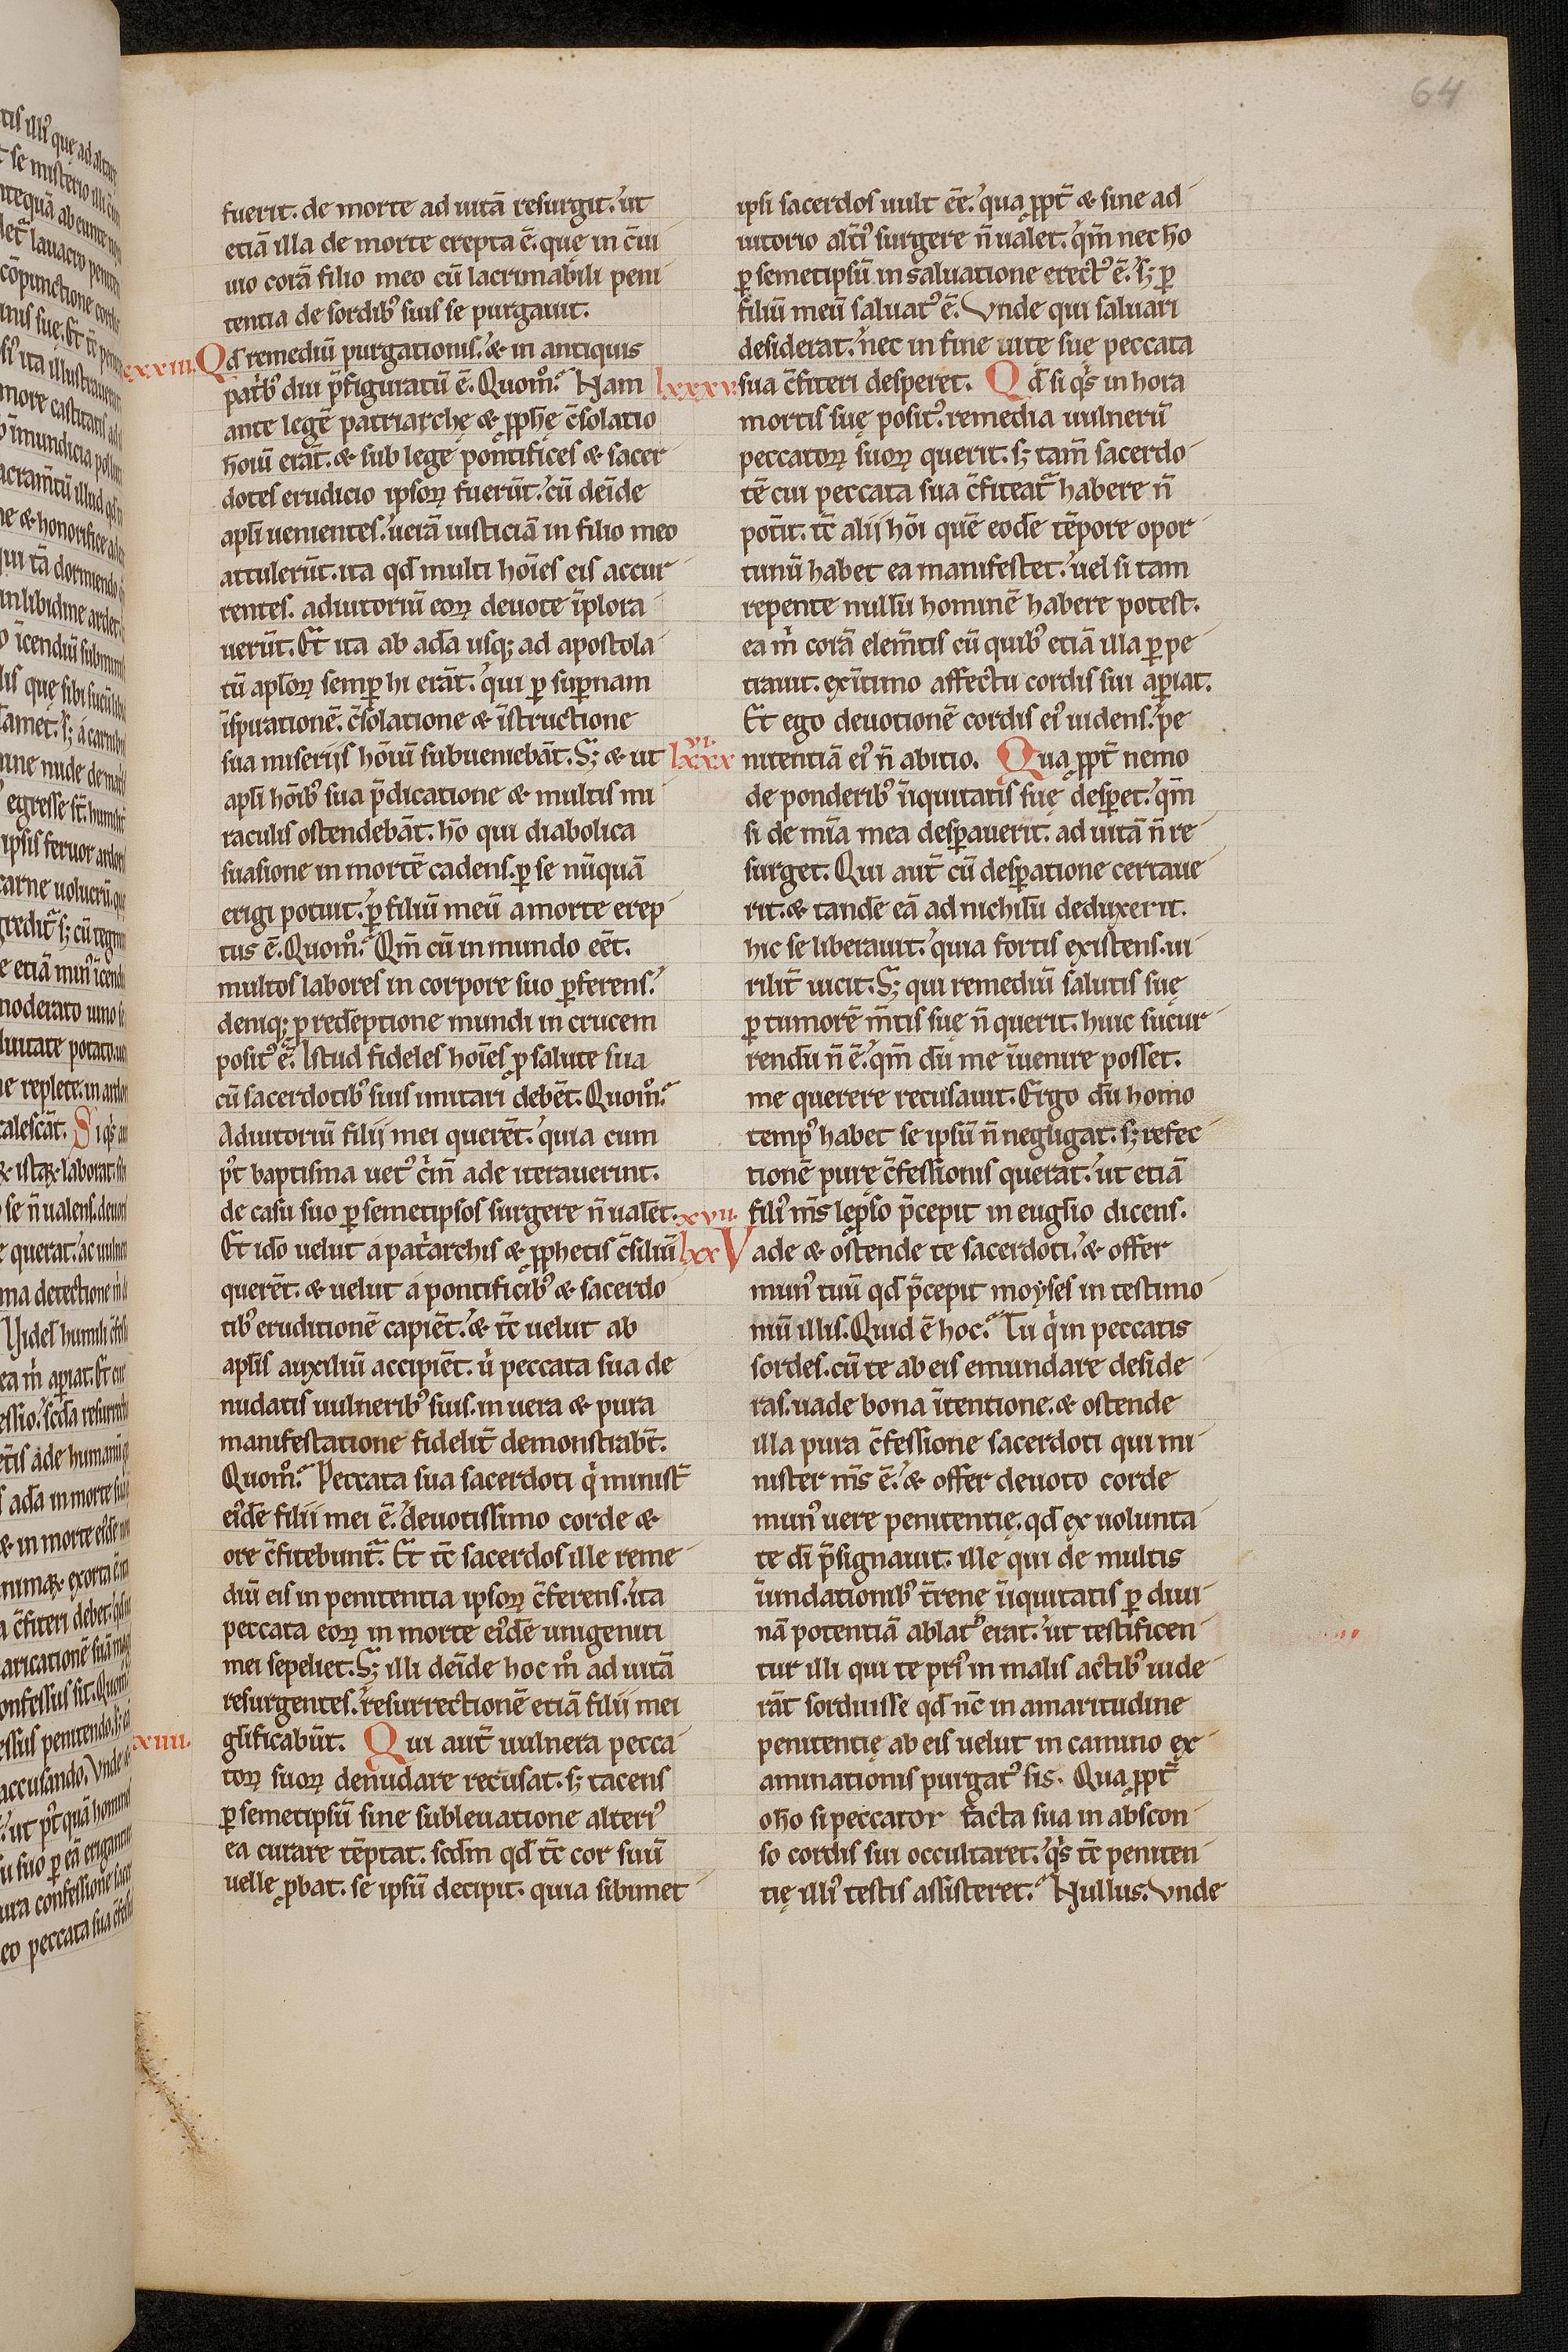 64
fuerit. de morte ad uitā resurgit. ut
etiā illa de morte erepta ē. quę in c̄ui
uio corā filio meo cū lacrimabili peni
tentia de sordibꝰ suis se purgauit.
Qd̄ remediū purgationis. & in antiquis
patribꝰ diu p̄figuratū ē. Quomͦ? Nam
ante legē patriarchę & ꝓphę c̄solatio
hoīū erāt. & sub lege pontifices & sacer
dotes erudicio ipsoꝝ fuerūt. cū deīde
apl̄i uenientes. uerā iusticiā in filio meo
attulerūt. ita qd̄ multi hoīes eis accur
rentes. adiutoriū eoꝝ deuote īplora
uerūt. Et ita ab adā usqꝫ ad apostola
tū apl̄oꝝ semꝑ hi erāt. qui ꝑ suꝑnam
īspirationē. c̄solatione & īstructione
sua miserijs hōiū subueniebāt. Sꝫ & ut
apl̄i hōibꝰ sua p̄dicatione & multis mi
raculis ostendebāt. hō qui diabolica
suasione in mortē cadens. ꝑ se nūquā
erigi potuit. ꝑ filiū meū a morte erep
tus ē. Quomͦ? Qm̄ cū in mundo eēt.
multos labores in corpore suo ꝑferens.
deniqꝫ ꝓ redēptione mundi in crucem
positꝰ ē. Istud fideles hoīes ꝓ salute sua
cū sacerdotibꝰ suis imitari debēt. Quomͦ?
Adiutoriū filij mei querēt. quia cum
p̄t baptisma uetꝰ c̄m̄ ade iterauerint.
de casu suo ꝑ semetipsos surgere n̄ ualēt.
Et ido uelut a patͥarchis & ꝓphetis c̄siliū
querēt. & uelut a pontificibꝰ & sacerdo
tibꝰ eruditionē capiēt. & tc̄ uelut ab
apl̄is auxiliū accipiēt. uͥ peccata sua de
nudatis uulneribꝰ suis. in uera & pura
manifestatione fidelit̄ demonstrabt̄.
Quomͦ? Peccata sua sacerdoti qͥ minist̄
eiꝰdē filii mei ē. deuotissimo corde &
ore c̄fitebunt̄. Et tc̄ sacerdos ille reme
diū eis in penitentia ipsoꝝ c̄ferens. ita
peccata eoꝝ in morte eiꝰdē unigeniti
mei sepeliet. Sꝫ illi deīde hoc mͦ ad uitā
resurgentes. resurrectionē etiā filij mei
glīficabūt. Qui aut̄ uulnera pecca
toꝝ suoꝝ denudare recusat. sꝫ tacens
ꝑ semetipsū sine subleuatione alteriꝰ
ea curare tēptat. scdm̄ qd̄ tc̄ cor suū
uelle ꝓbat. se ipsū decipit. quia sibimet
lxxxv.
lxxxvi.
lxxxvii.
ipsi sacerdos uult eē. qua ꝓpt̄ & sine ad
iutorio alt̄iꝰ surgere n̄ ualet. qm̄ nec hō
ꝑ semetipsū in saluatione erectꝰ ē. sꝫ ꝑ
filiū meū saluatꝰ ē. Vnde qui saluari
desiderat. nec in fine uitę suę peccata
sua c̄fiteri desperet. Qd̄ si qͥs in hora
mortis suę positꝰ. remedia uulnerū
peccatoꝝ suoꝝ querit. sꝫ tam̄ sacerdo
tē cui peccata sua c̄fiteat̄ habere n̄
potit. tc̄ alij hōi quē eodē tēpore opor
tunū habet ea manifestet. uel si tam
repente nullū hominē habere potest.
ea mͥ corā elem̄tis cū quibꝰ etiā illa ꝑpe
trauit. ex ītimo affectu cordis sui aꝑiat.
Et ego deuotionē cordis eiꝰ uidens. pe
nitentiā eiꝰ n̄ abitio. Qua ꝓpt̄ nemo
de ponderibꝰ īiquitatis suę desꝑet. qm̄
si de mīa mea desꝑauerit. ad uitā n̄ re
surget. Qui aut̄ cū desꝑatione certaue
rit. & tandē eā ad nichilū deduxerit.
hic se liberauit. quia fortis existens. ui
rilit̄ uicit. Sꝫ qui remediū salutis suę
ꝑ tumorē m̄tis suę n̄ querit. huic sucur
rendū n̄ ē. qm̄ dū me īuenire posset.
me querere recusauit. Ergo dū homo
tempꝰ habet se ipsū n̄ negligat. sꝫ refec
tionē purę c̄fessionis querat. ut etiā
filiꝰ m̄s lep̄so p̄cepit in euglīo dicens.
Vade & ostende te sacerdoti. & offer
munꝰ tuū qd̄ p̄cepit moyses in testimo
niū illis. Quid ē hoc? Tu qͥ in peccatis
sordes. cū te ab eis emundare deside
ras. uade bona ītentione. & ostende
illa pura c̄fessione sacerdoti qui mi
nister m̄s ē. & offer deuoto corde
munꝰ uere penitentię. qd̄ ex uolunta
te dī p̄signauit. ille qui de multis
īundationibꝰ t̄renę īiquitatis ꝑ diui
nā potentiā ablatꝰ erat. ut testificen
tur illi qui te priꝰ in malis actibꝰ uide
rāt sorduisse qd̄ nc̄ in amaritudine
penitentię ab eis uelut in camino ex
aminationis purgatꝰ sis. Qua ꝓpt̄
o hō si peccator facta sua in abscon
so cordis sui occultaret. qͥs tc̄ peniten
tię illiꝰ testis assisteret? Nullus. Vnde